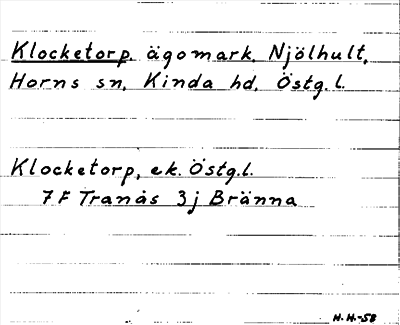 Klocketorp, ägomark, Njölhult,
Horns sn, Kinda hd, Östg.l.
Klocketorp, ek. Östg.l.
7 F Tranås 3j Bränna
H.H.-58